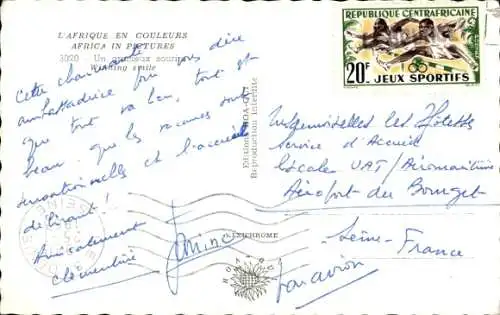 L'AFRIQUE EN COULEURS
AFRICA IN PICTURES
3020 Un gracieux sourire
Winning smile
Cette charmante
ambassadrice pour vous dire
que tout va bien, tout est
beau que les vacances sont
sensationnelles et l'accueil
délirant!
Amicalement
Clémentine
Reproduction interdite
REPUBLIQUE CENTRAFRICAINE
20F JEUX SPORTIFS
Mesdemoiselles les Hôtesses
Service d'Accueil
Escale UAT/Aéromaritime
Aéroport du Bourget
Seine-France
par avion